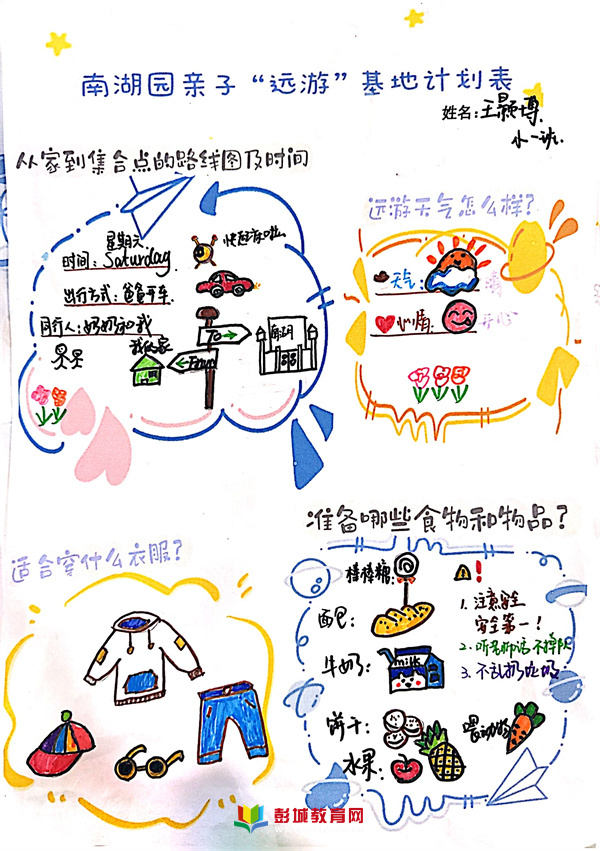 南湖园亲子“远游”基地计划表
姓名:王颢博
小一班.
从家到集合点的路线图及时间
星期六
时间:Saturday
出行方式:爸爸开车.
同行人:奶奶和我
果果
我的家
From
To
南湖
远游天气怎么样?
天气:
心情:
开心
适合穿什么衣服?
准备哪些食物和物品?
棒棒糖:
面包:
牛奶:
milk
饼干:
水果:
1.注意安全
安全第一!
2.听老师话不掉队
喂动物
彭城教育网